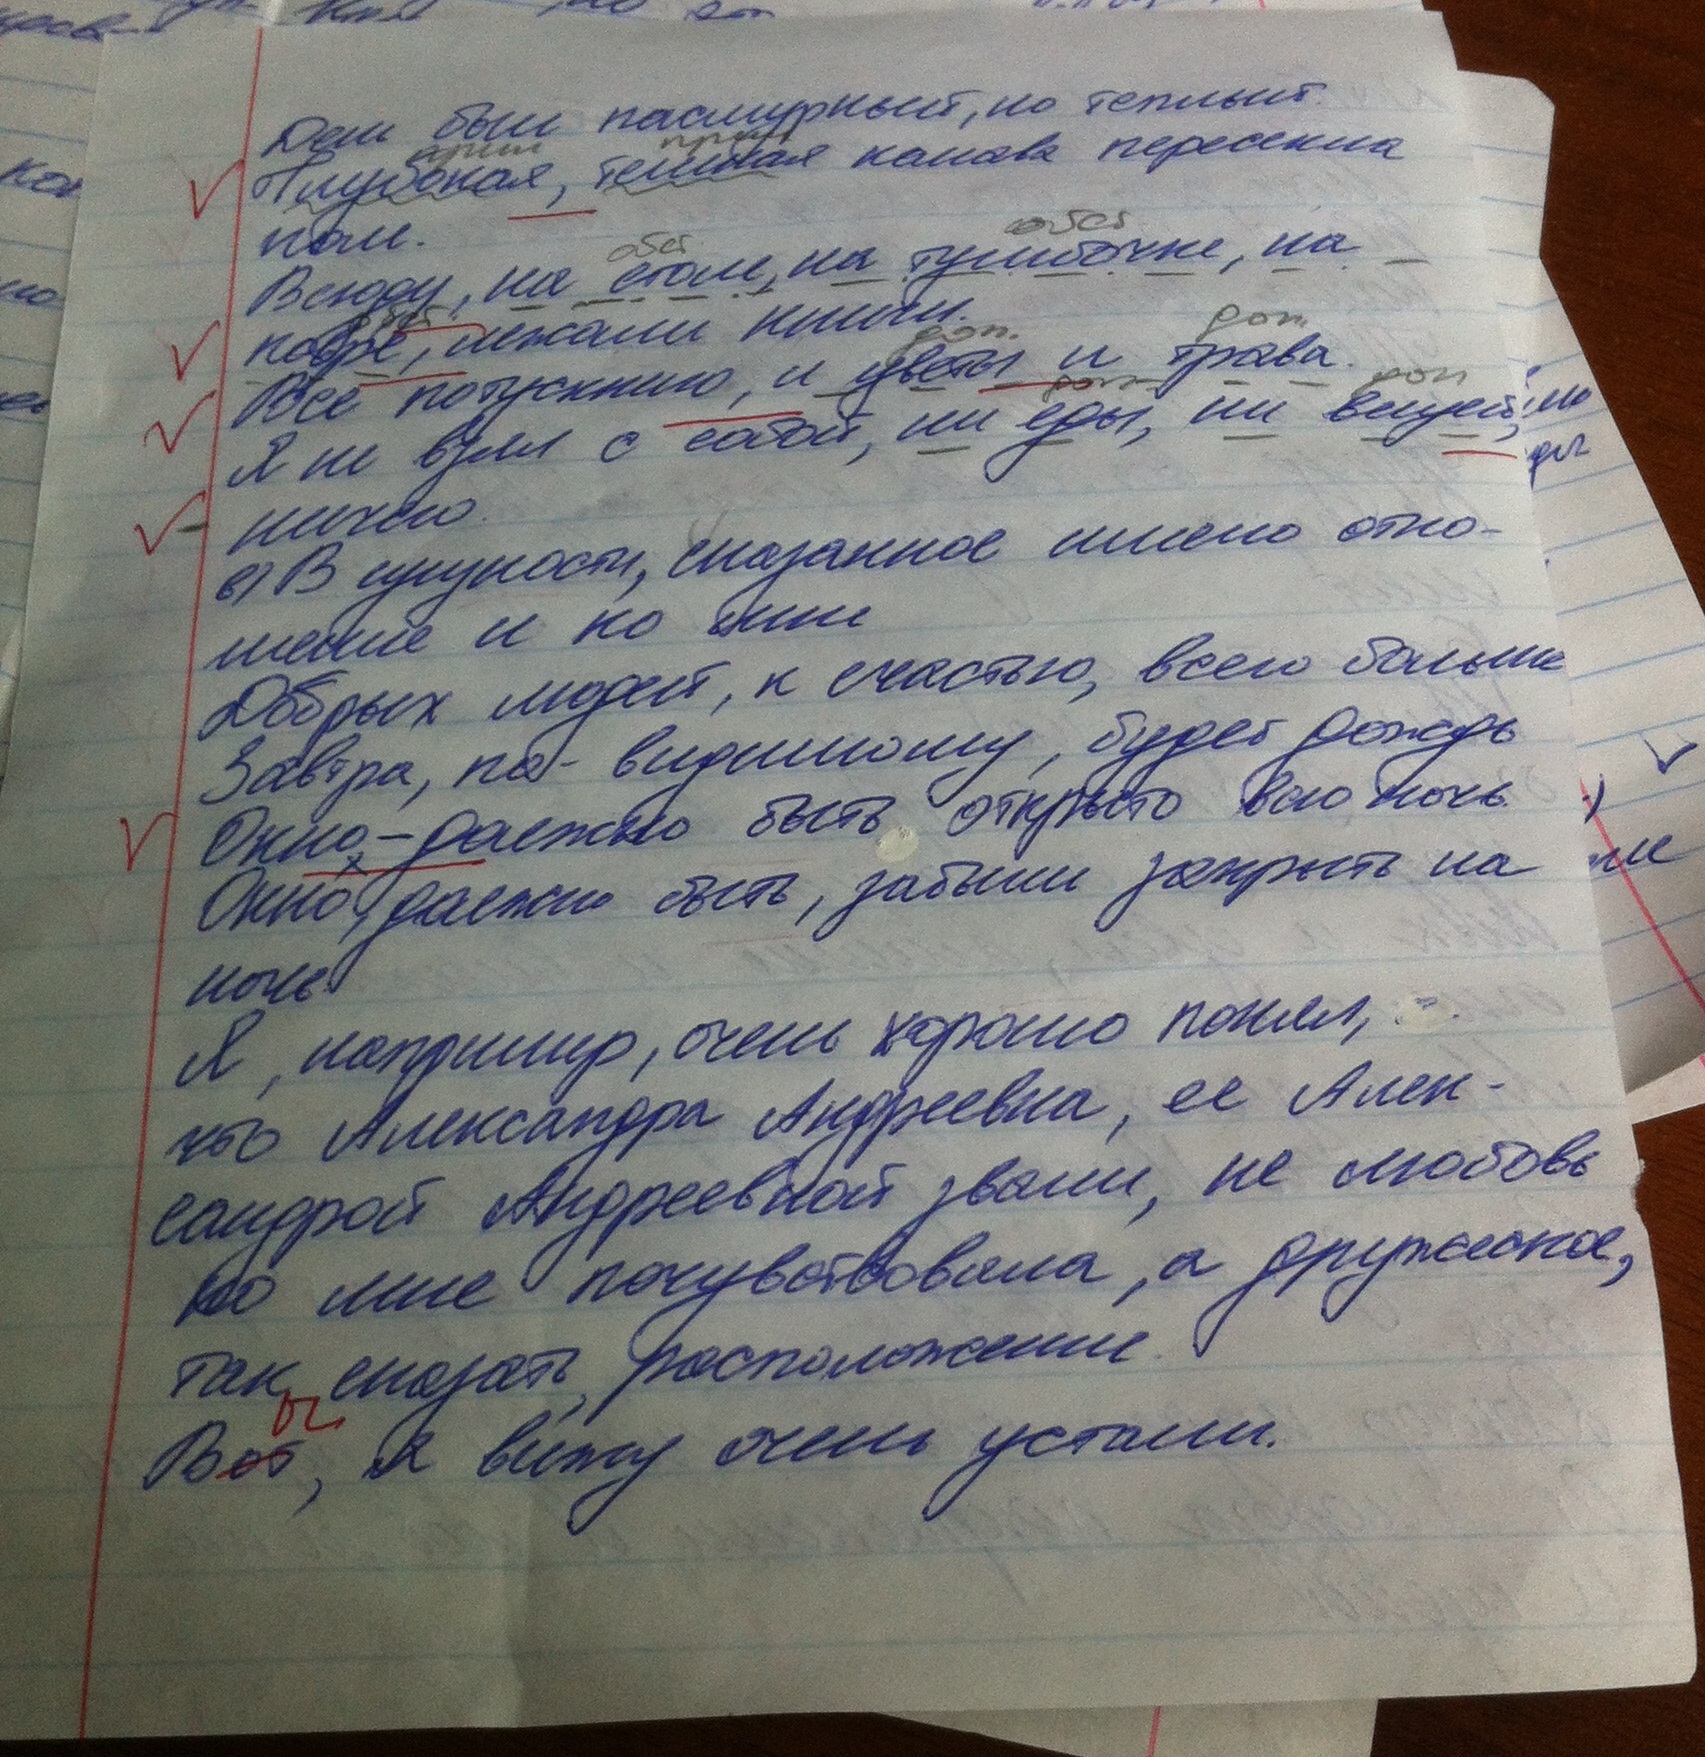 День был пасмурный, но теплый.
Глубокая, темная канава пересекла
поле.
Всюду, на столе, на тумбочке, на
ковре, лежали книги.
Все потускнело, и цветы и трава.
Я не взял с собой, ни еды, ни вещей,
ничего.
в) В сущности, сказанное имело отно-
шение и ко мне
Добрых людей, к счастью, всего больше
Завтра, по-видимому, будет дождь
Окно - должно быть открыто всю ночь.
Окно, должно быть, забыли закрыть на
ночь.
Я, например, очень хорошо понял,
что Александра Андреевна, ее Алек-
сандрой Андреевной звали, не любовь
ко мне почувствовала, а дружеское,
так сказать, расположение.
ы
Вот, я вижу очень устали.